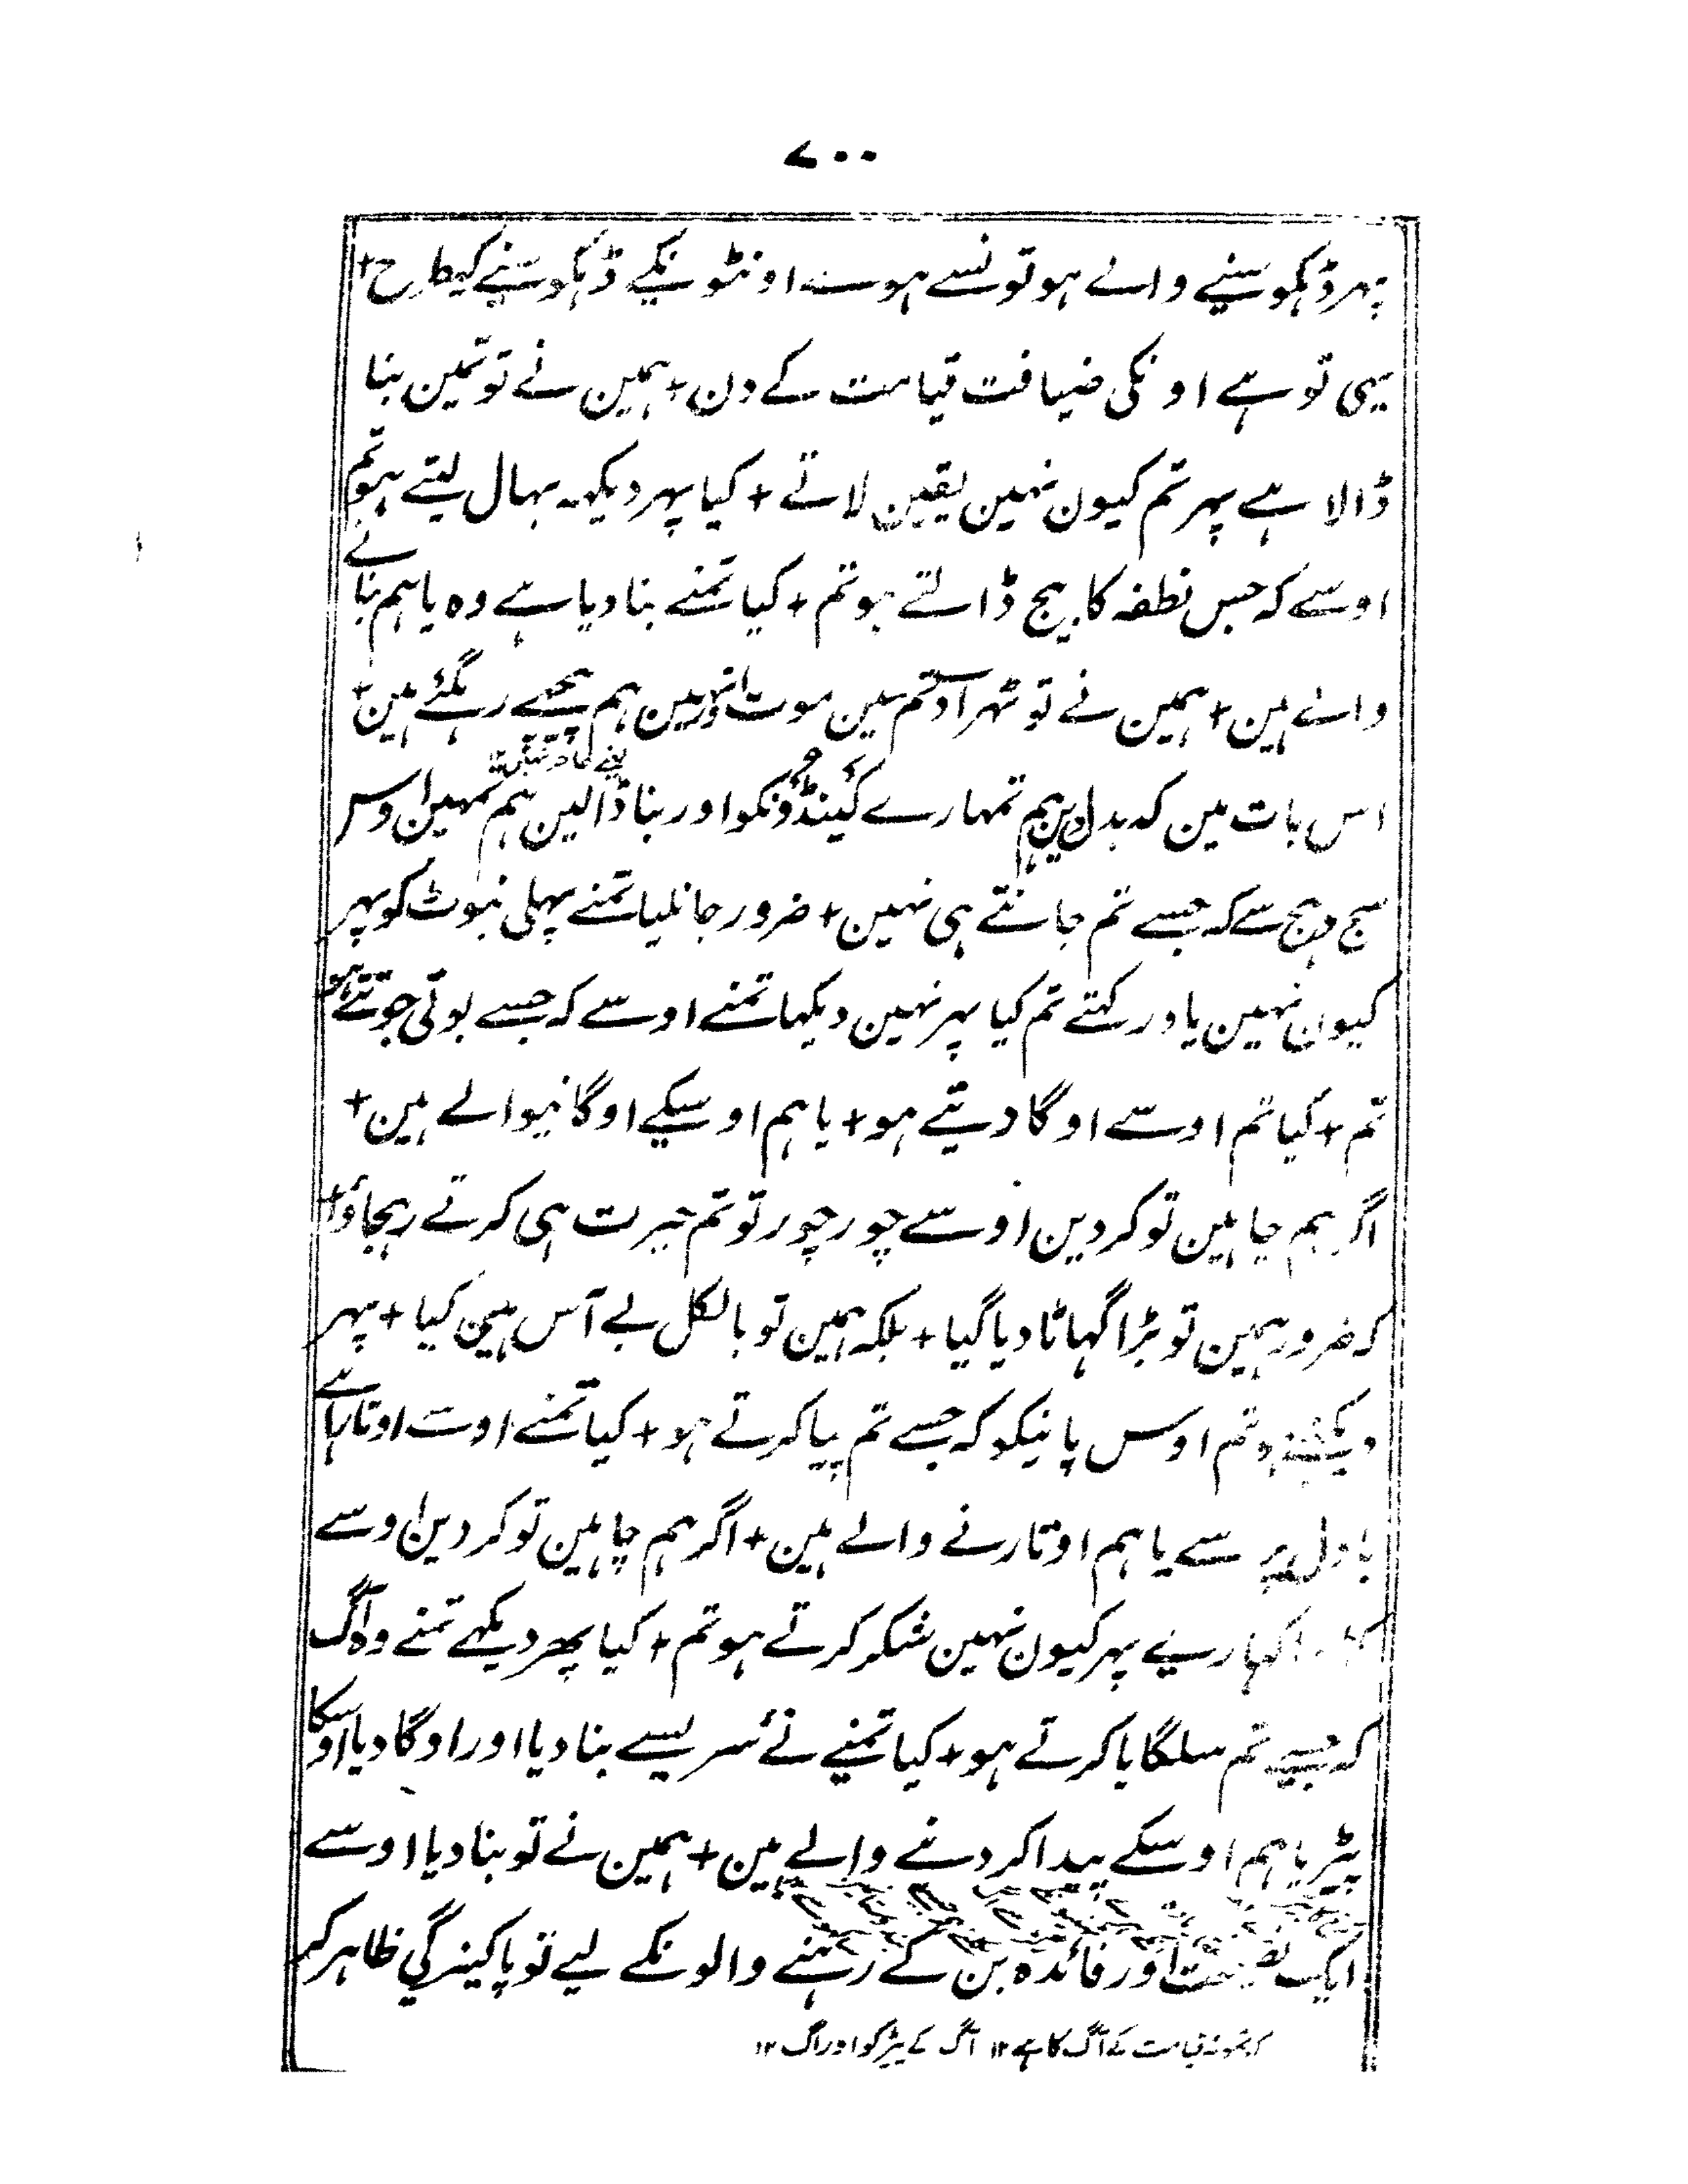 ۷۰۰
پہر ڈہکوسنے والے ہو تونسے ہوے اونٹونکے ڈہکوسنے کیطرح +
یہی تو ہے اونکی ضیافت قیامت کے دن + ہمین نے تو تمین بنا
ڈالا ہے پہر تم کیون نہین یقین لاتے + کیا پہر دیکہہ بہال لیتے ہو تم
اوسے کہ جس نطفہ کا بیج ڈالتے ہو تم + کیا تمنے بنا دیا ہے وہ یا ہم بنانے
والے ہین + ہمین نے تو ٹہرا دی تم مین موت اور نہین ہم پیچھے رہگئے ہین +
اس بات مین کہ بدل دین ہم تمہارے کینڈونکو اور بنا ڈالین ہم تمہین اوس
سج دہج سے کہ جسے تم جانتے ہی نہین + ضرور جانلیا تمنے پہلی نبوٹ کو پہر
کیون نہین یاد رکہتے تم کیا پہر نہین دیکہا تمنے اوسے کہ جسے بوتی جوتتے ہو
تم + کیا تم اوسے اوگا دیتے ہو + یا ہم اوسکے اوگانیوالے ہین +
اگر ہم چاہین تو کردین اوسے چور چور تو تم حیرت ہی کرتے رہجاؤ +
کہ ضرور ہمین تو بڑا گہاٹا دیا گیا + بلکہ ہمین تو بالکل بے آس ہین کیا + پہر
دیکہتے ہو تم اوس پانیکو کہ جسے تم پیا کرتے ہو + کیا تمنے اوسے اوتارا ہے
بادل پر سے یا ہم اوتارنے والے ہین + اگر ہم چاہین تو کردین اوسے
کہارے پہر کیون نہین شکر کرتے ہو تم + کیا پھر دیکہے تمنے وہ آگ
کہ جسے تم سلگایا کرتے ہو + کیا تمنے نئے سر یسے بنا دیا اور اوگا دیا اوسکا
پیڑ یا ہم اوسکے پیدا کر دینے والے ہین + ہمین نے تو بنا دیا اوسے
ایک نصیحت اور فائدہ بن کے رہنے والونکے لیے تو پاکیزگی ظاہر کر
کہ نمونہ قیامت کے آگ کا ہے ۱۲ آگ کے پیڑ کو اور آگ ۱۲